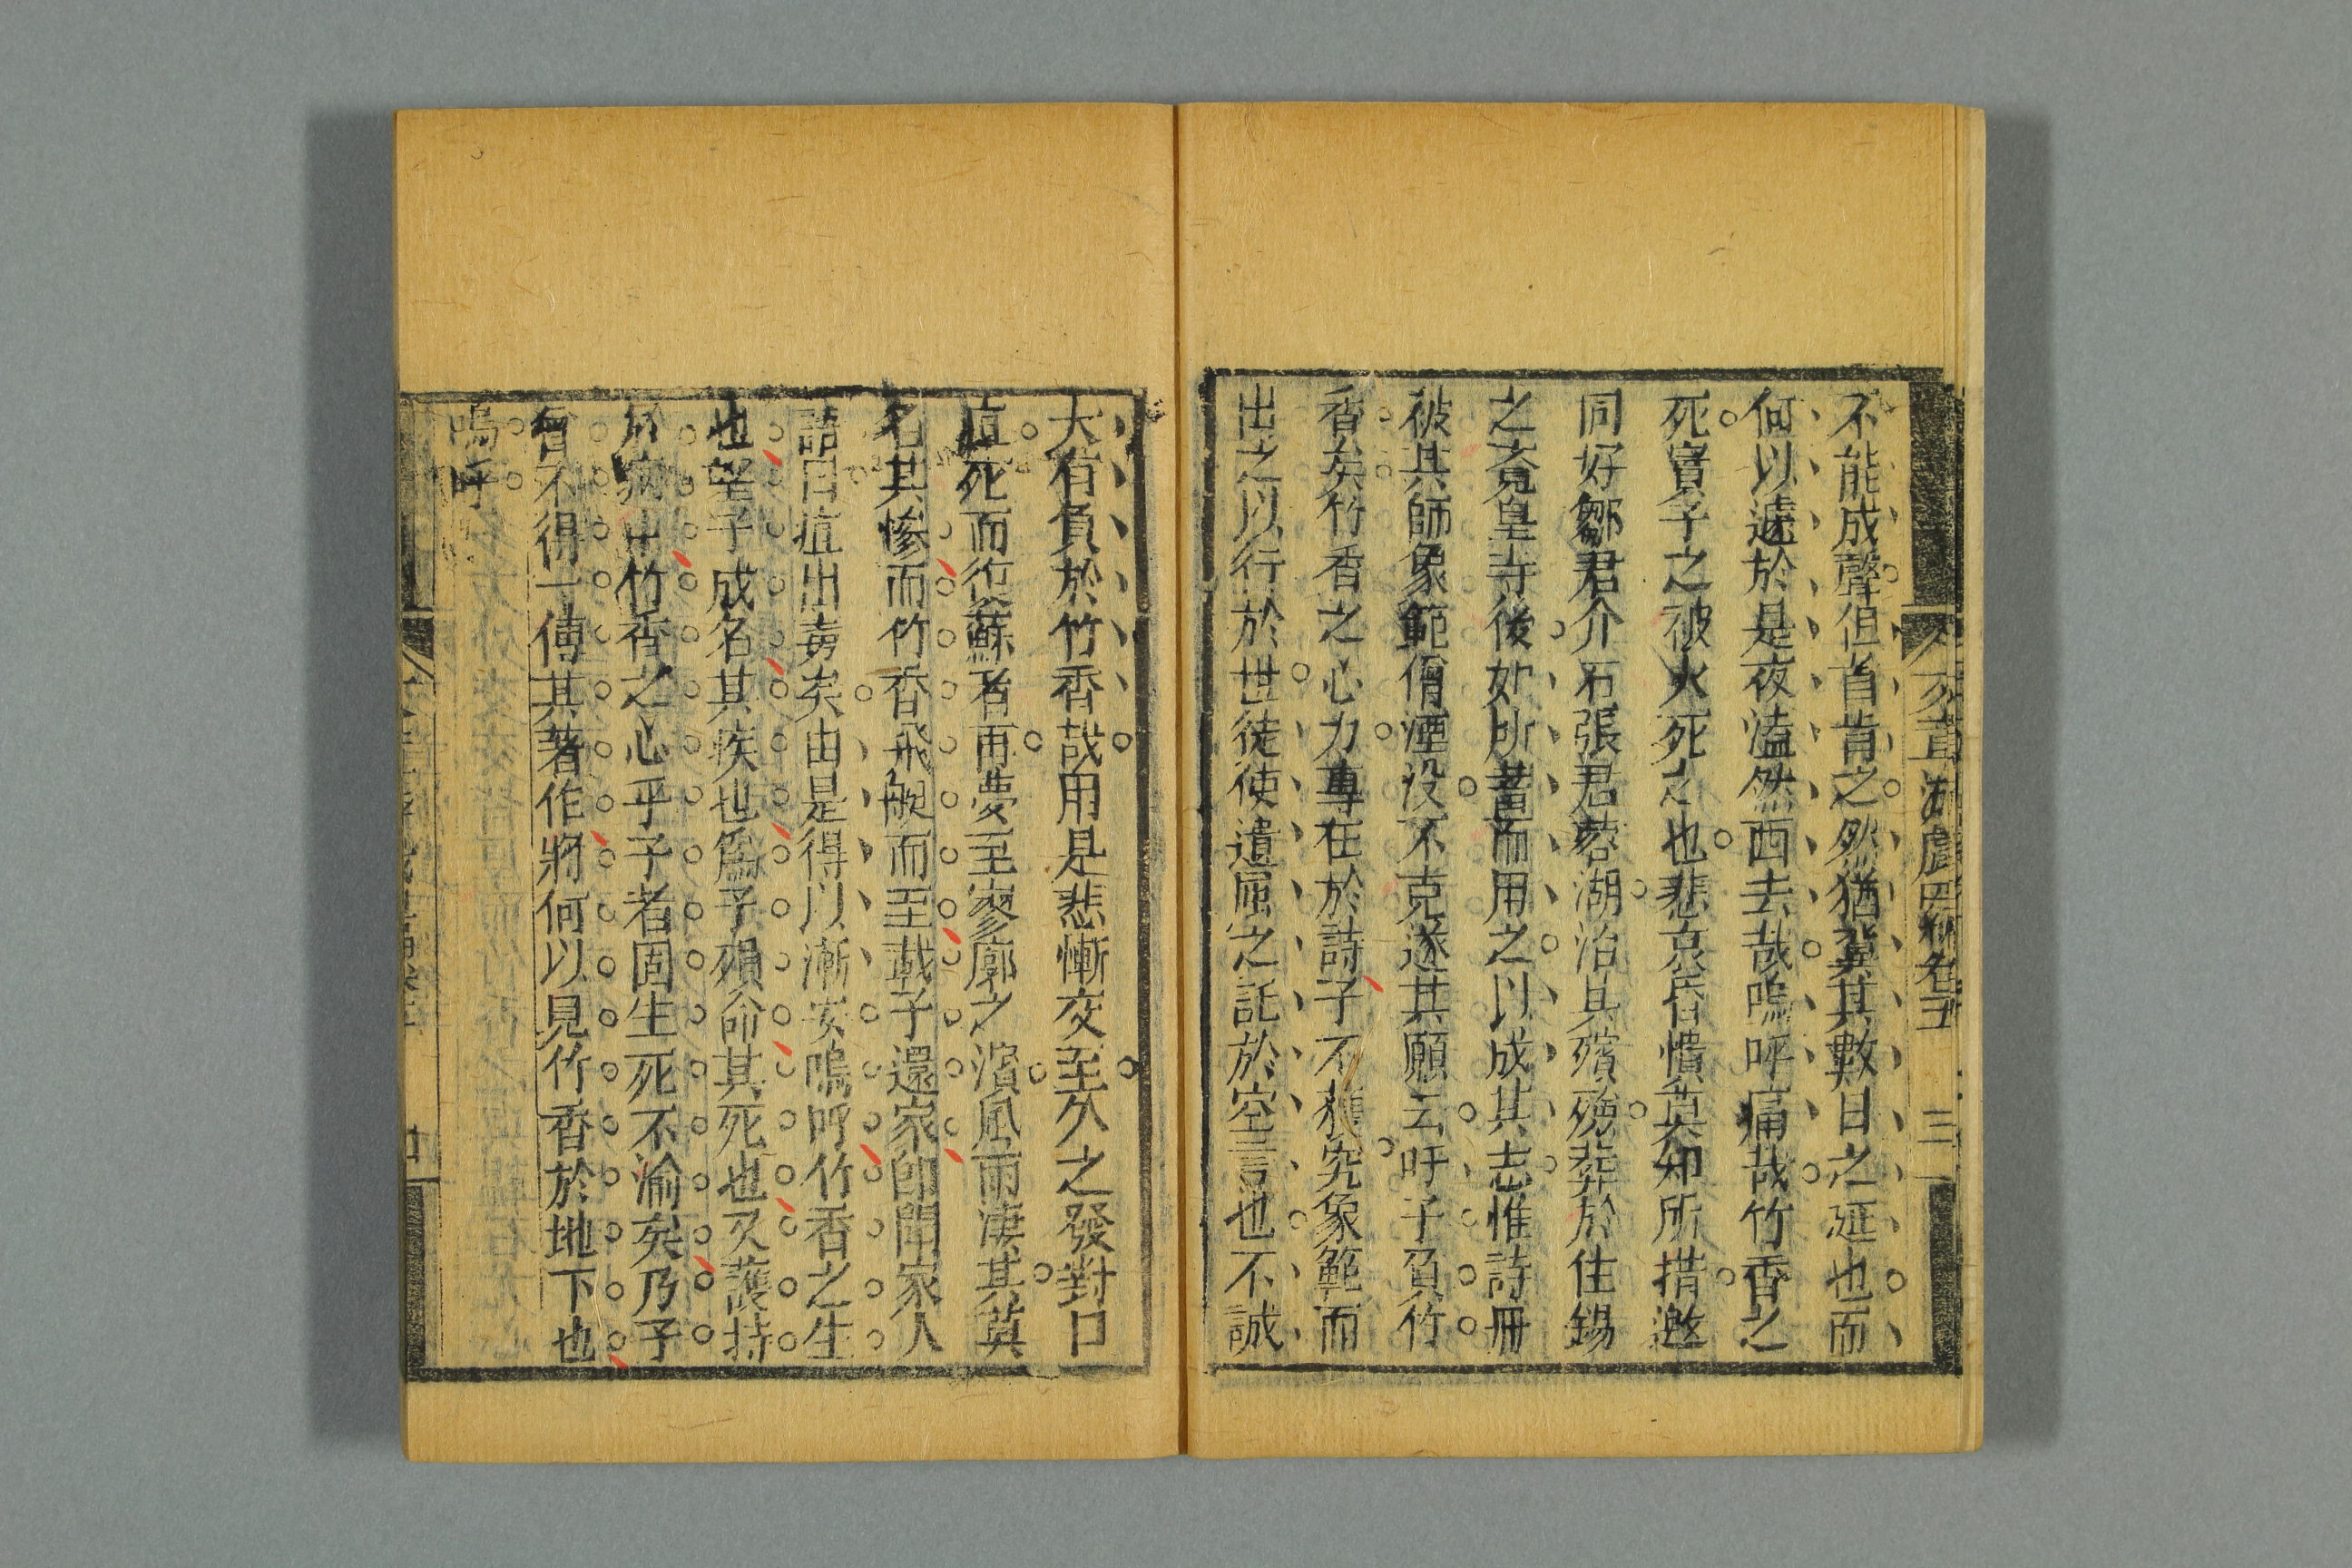 不能成聲但首肯之然猶冀其數日之延也而
何以遽於是夜溘然西去哉嗚呼痛哉竹香之
死實予之被火死之也悲哀昏憒莫知所措邀
同好鄒君介石張君蓉湖治其殯殮葬於住錫
之堯皇寺後如所蓄而用之以成其志惟詩冊
被其師象範僧湮没不克遂其願云吁予負竹
香矣竹香之心力專在於詩予不獲究象範而
出之以行於世徒使遺屈之託於空言也不誠
三
大有負於竹香哉用是悲慚交至久之發對口
疽死而復蘇者再夢至寥廓之濱風雨淒其莫
名其慘而竹香飛艇而至載予還家卽聞家人
語曰疽出毒矣由是得以漸安嗚呼竹香之生
也望予成名其疾也爲予殞命其死也又護持
於病中竹香之心乎予者固生死不渝矣乃予
曾不得一傳其著作將何以見竹香於地下也
嗚呼